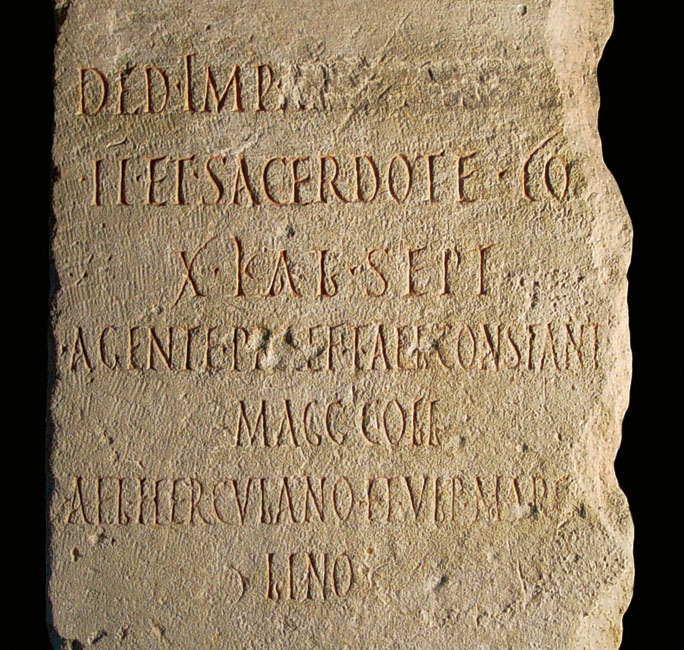 DED·IMP·
·II·ET·SACERDOTE·CO
X·KAL·SEPT
·AGENTE·PRAEF·T·AEL·CONSTANT
MAGG·COLL
AEL·HERCVLANO·ET·VLP·MARCE
LINO